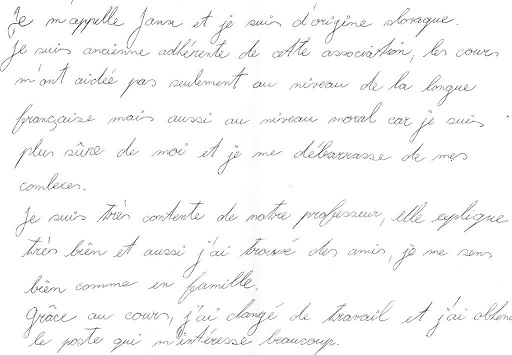 Je m'appelle Jana et je suis d'origine slovaque.
Je suis ancienne adhérente de cette association, les cours
m'ont aidée pas seulement au niveau de la langue
française mais aussi au niveau moral car je suis
plus sûre de moi et je me débarrasse de mes
complexes.
Je suis très contente de notre professeur, elle explique
très bien et aussi j'ai trouvé des amis, je me sens
bien comme en famille.
Grâce au cours, j'ai changé de travail et j'ai obtenu
le poste qui m'intéresse beaucoup.